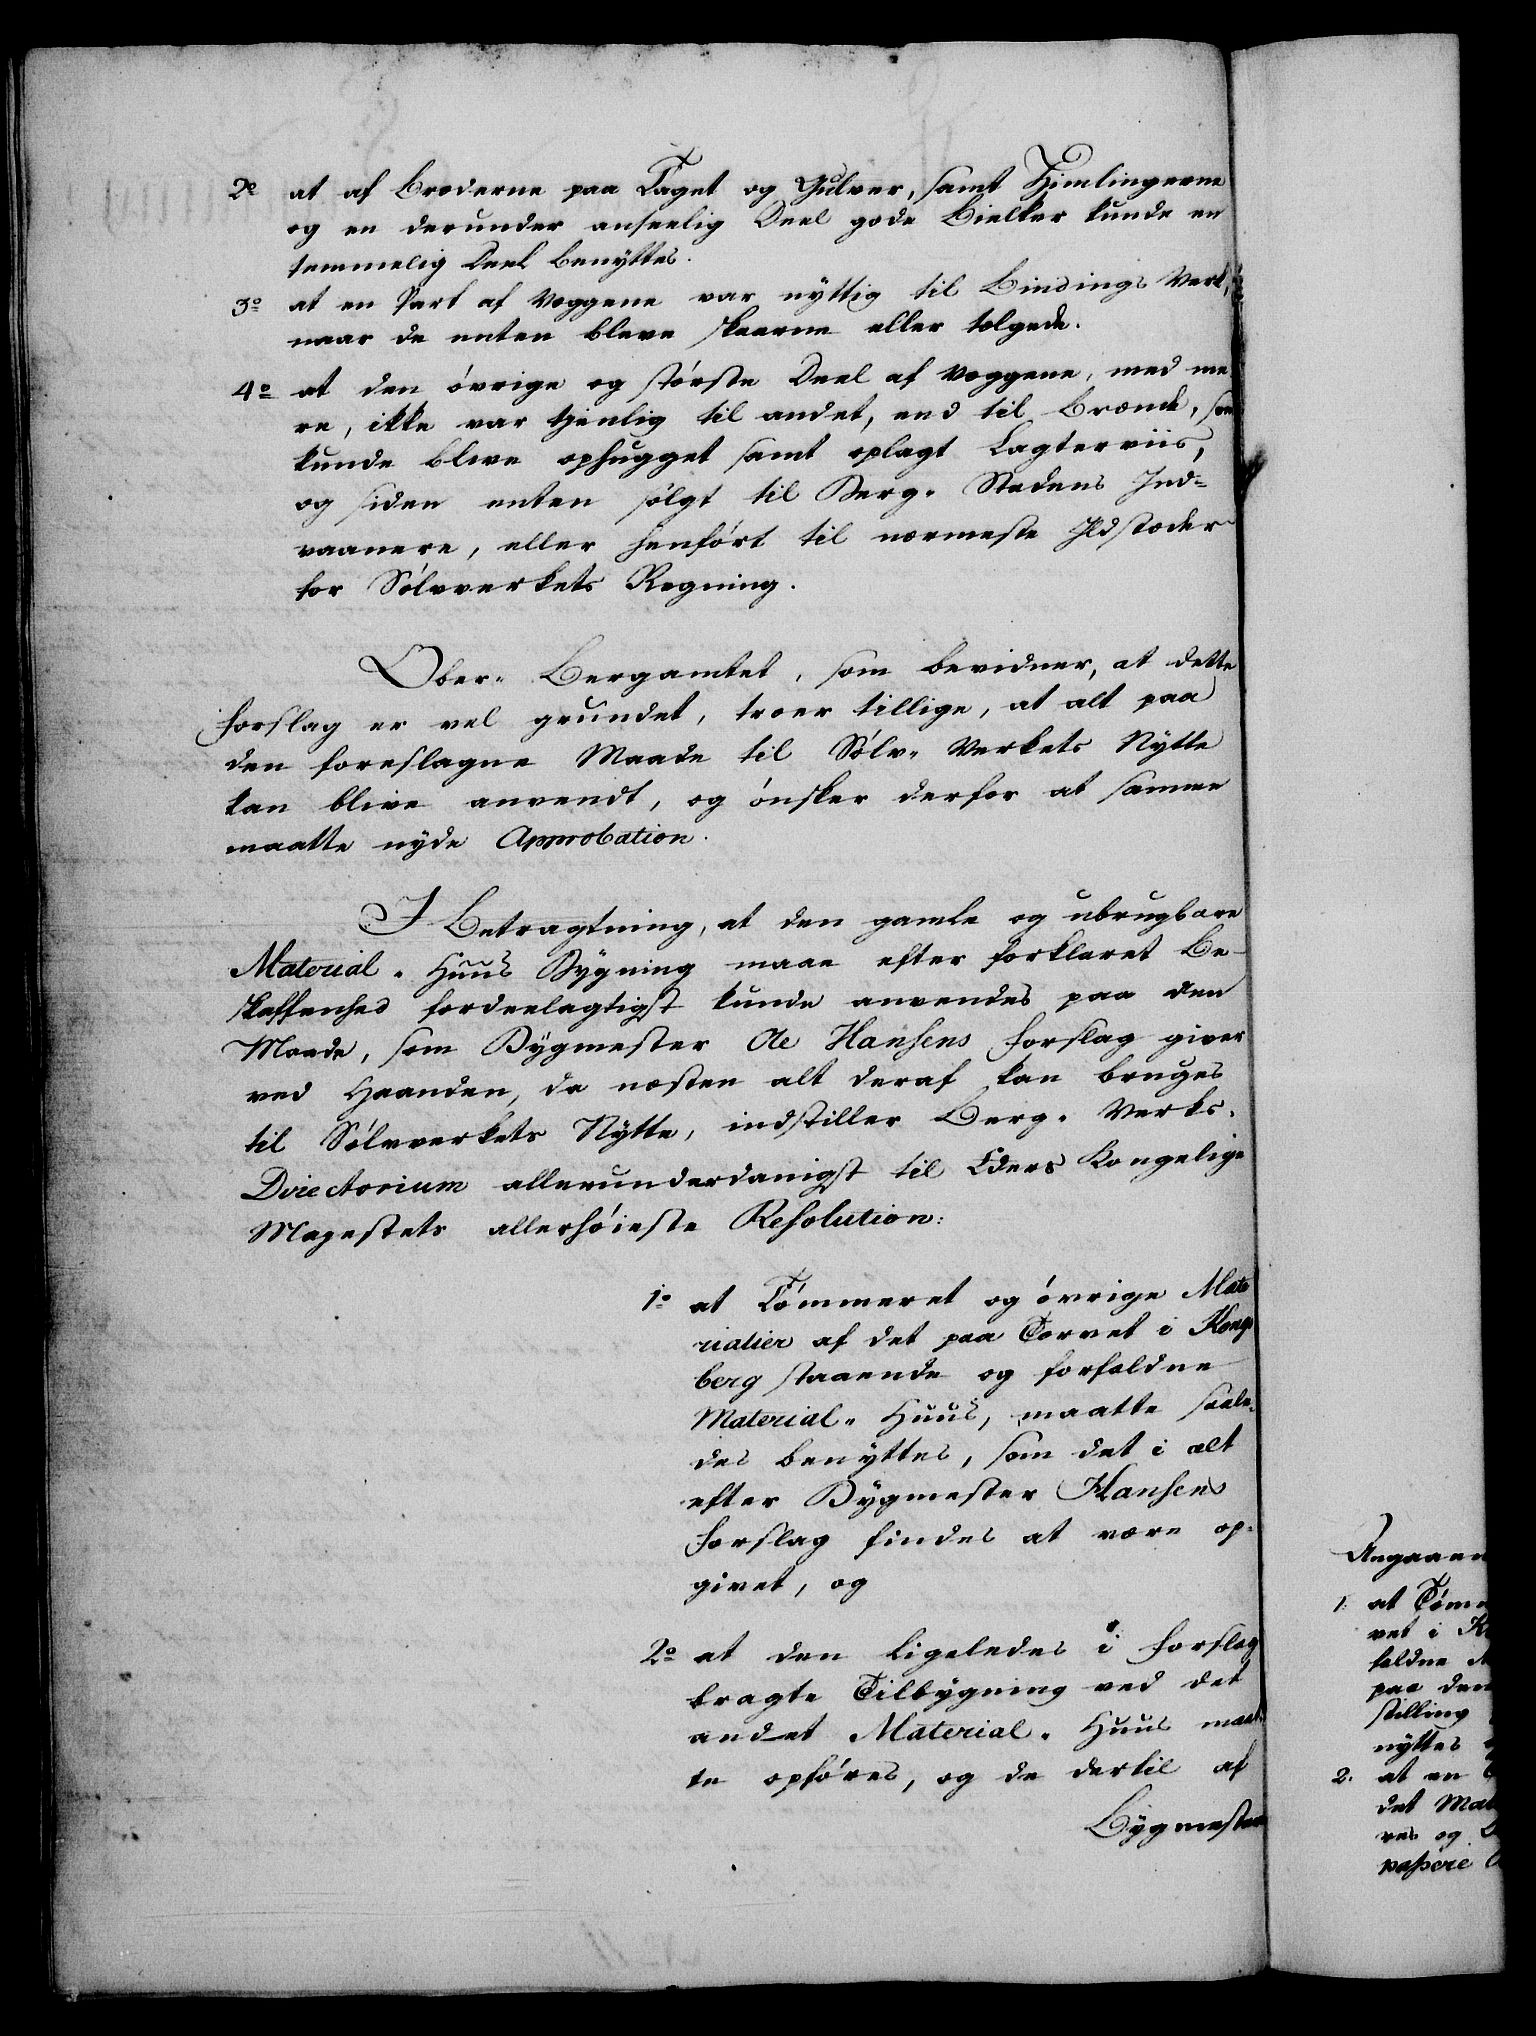 2o at af Brederne paa Taget og Gulver, samt Himlingerne
og en derunder anseelig Deel gode Bielker kunde en
temmelig Deel benyttes.
3o at en Part af Væggene var nyttig til Bindings Verk,
naar de enten bleve skaarne eller tælgede.
4o at den övrige og störste Deel af Væggene, med me
re, ikke var tjenlig til andet, end til Brænde, som
kunde blive ophugget samt oplagt Lagterviis,
og siden enten solgt til Berg-Stadens Ind=
vaanere, eller henfört til nærmeste Ildstæder
for Sölvverkets Regning.
Ober-Bergamtet, som bevidner, at dette
Forslag er vel grundet, troer tillige, at alt paa
den foreslagne Maade til Sölv-Verkets Nytte
kan blive anvendt, og önsker derfor at samme
maatte nyde Approbation.
I Betragtning, at den gamle og ubrugbare
Material-Huus Bygning maae efter forklaret Be-
skaffenhed fordeelagtigst kunde anvendes paa den
Maade, som Bygmester Ole Hansens Forslag giver
ved Haanden, da næsten alt deraf kan bruges
til Sölvverkets Nytte, indstiller Berg-Verks-
Directorium allerunderdanigst til Eders Kongelige
Majestets allerhöieste Resolution:
1o at Tömmeret og övrige Mate
rialier af det paa Torvet i Kongs
berg staaende og forfaldne
Material-Huus, maatte saale-
des benyttes, som det i alt
efter Bygmester Hansens
Forslag findes at være op-
givet, og
2o at den ligeledes i Forslag
bragte Tilbygning ved det
andet Material-Huus maat
te opföres, og de dertil af
Bygmesteren
Angaaen
1. at Tömm
vet i K
faldne M
paa den
stilling
nyttes
2. at en
det Mat
res og
passere